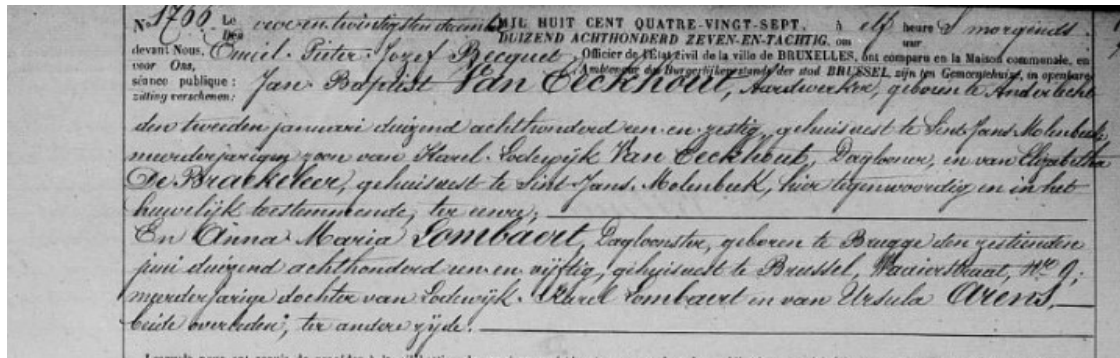 No 1766 Le vierentwintigsten decemb. MIL HUIT CENT QUATRE-VINGT-SEPT, à elf heure s morgends.
Den DUIZEND ACHTHONDERD ZEVEN-EN-TACHTIG, om uur
devant Nous, Emiel-Pieter-Jozef Becquet, Officier de l'État civil de la ville de BRUXELLES, ont comparu en la Maison communale, en
voor Ons, Ambtenaar des Burgerlijkenstands der stad BRUSSEL, zijn ten Gemeentehuize, in openbare
séance publique : Jan-Baptist Van Eeckhout, Aardwerker, geboren te Anderlecht
zitting verschenen;
den tweeden januari duizend achthonderd een-en-zestig, gehuisvest te Sint-Jans-Molenbeek,
meerderjarigen zoon van Karel-Lodewijk Van Eeckhout, Daglooner, en van Elizabetha
De Braekeleer, gehuisvest te Sint-Jans-Molenbeek, hier tegenwoordig en in het
huwelijk toestemmende, ter eenre;
En Anna-Maria Lombaert, Dagloonster, geboren te Brugge den zestienden
juni duizend achthonderd een-en-vijftig, gehuisvest te Brussel, Waaierstraat, No 9;
meerderjarige dochter van Lodewijk-Karel Lombaert en van Ursula Arens,
beide overleden; ter andere zijde.